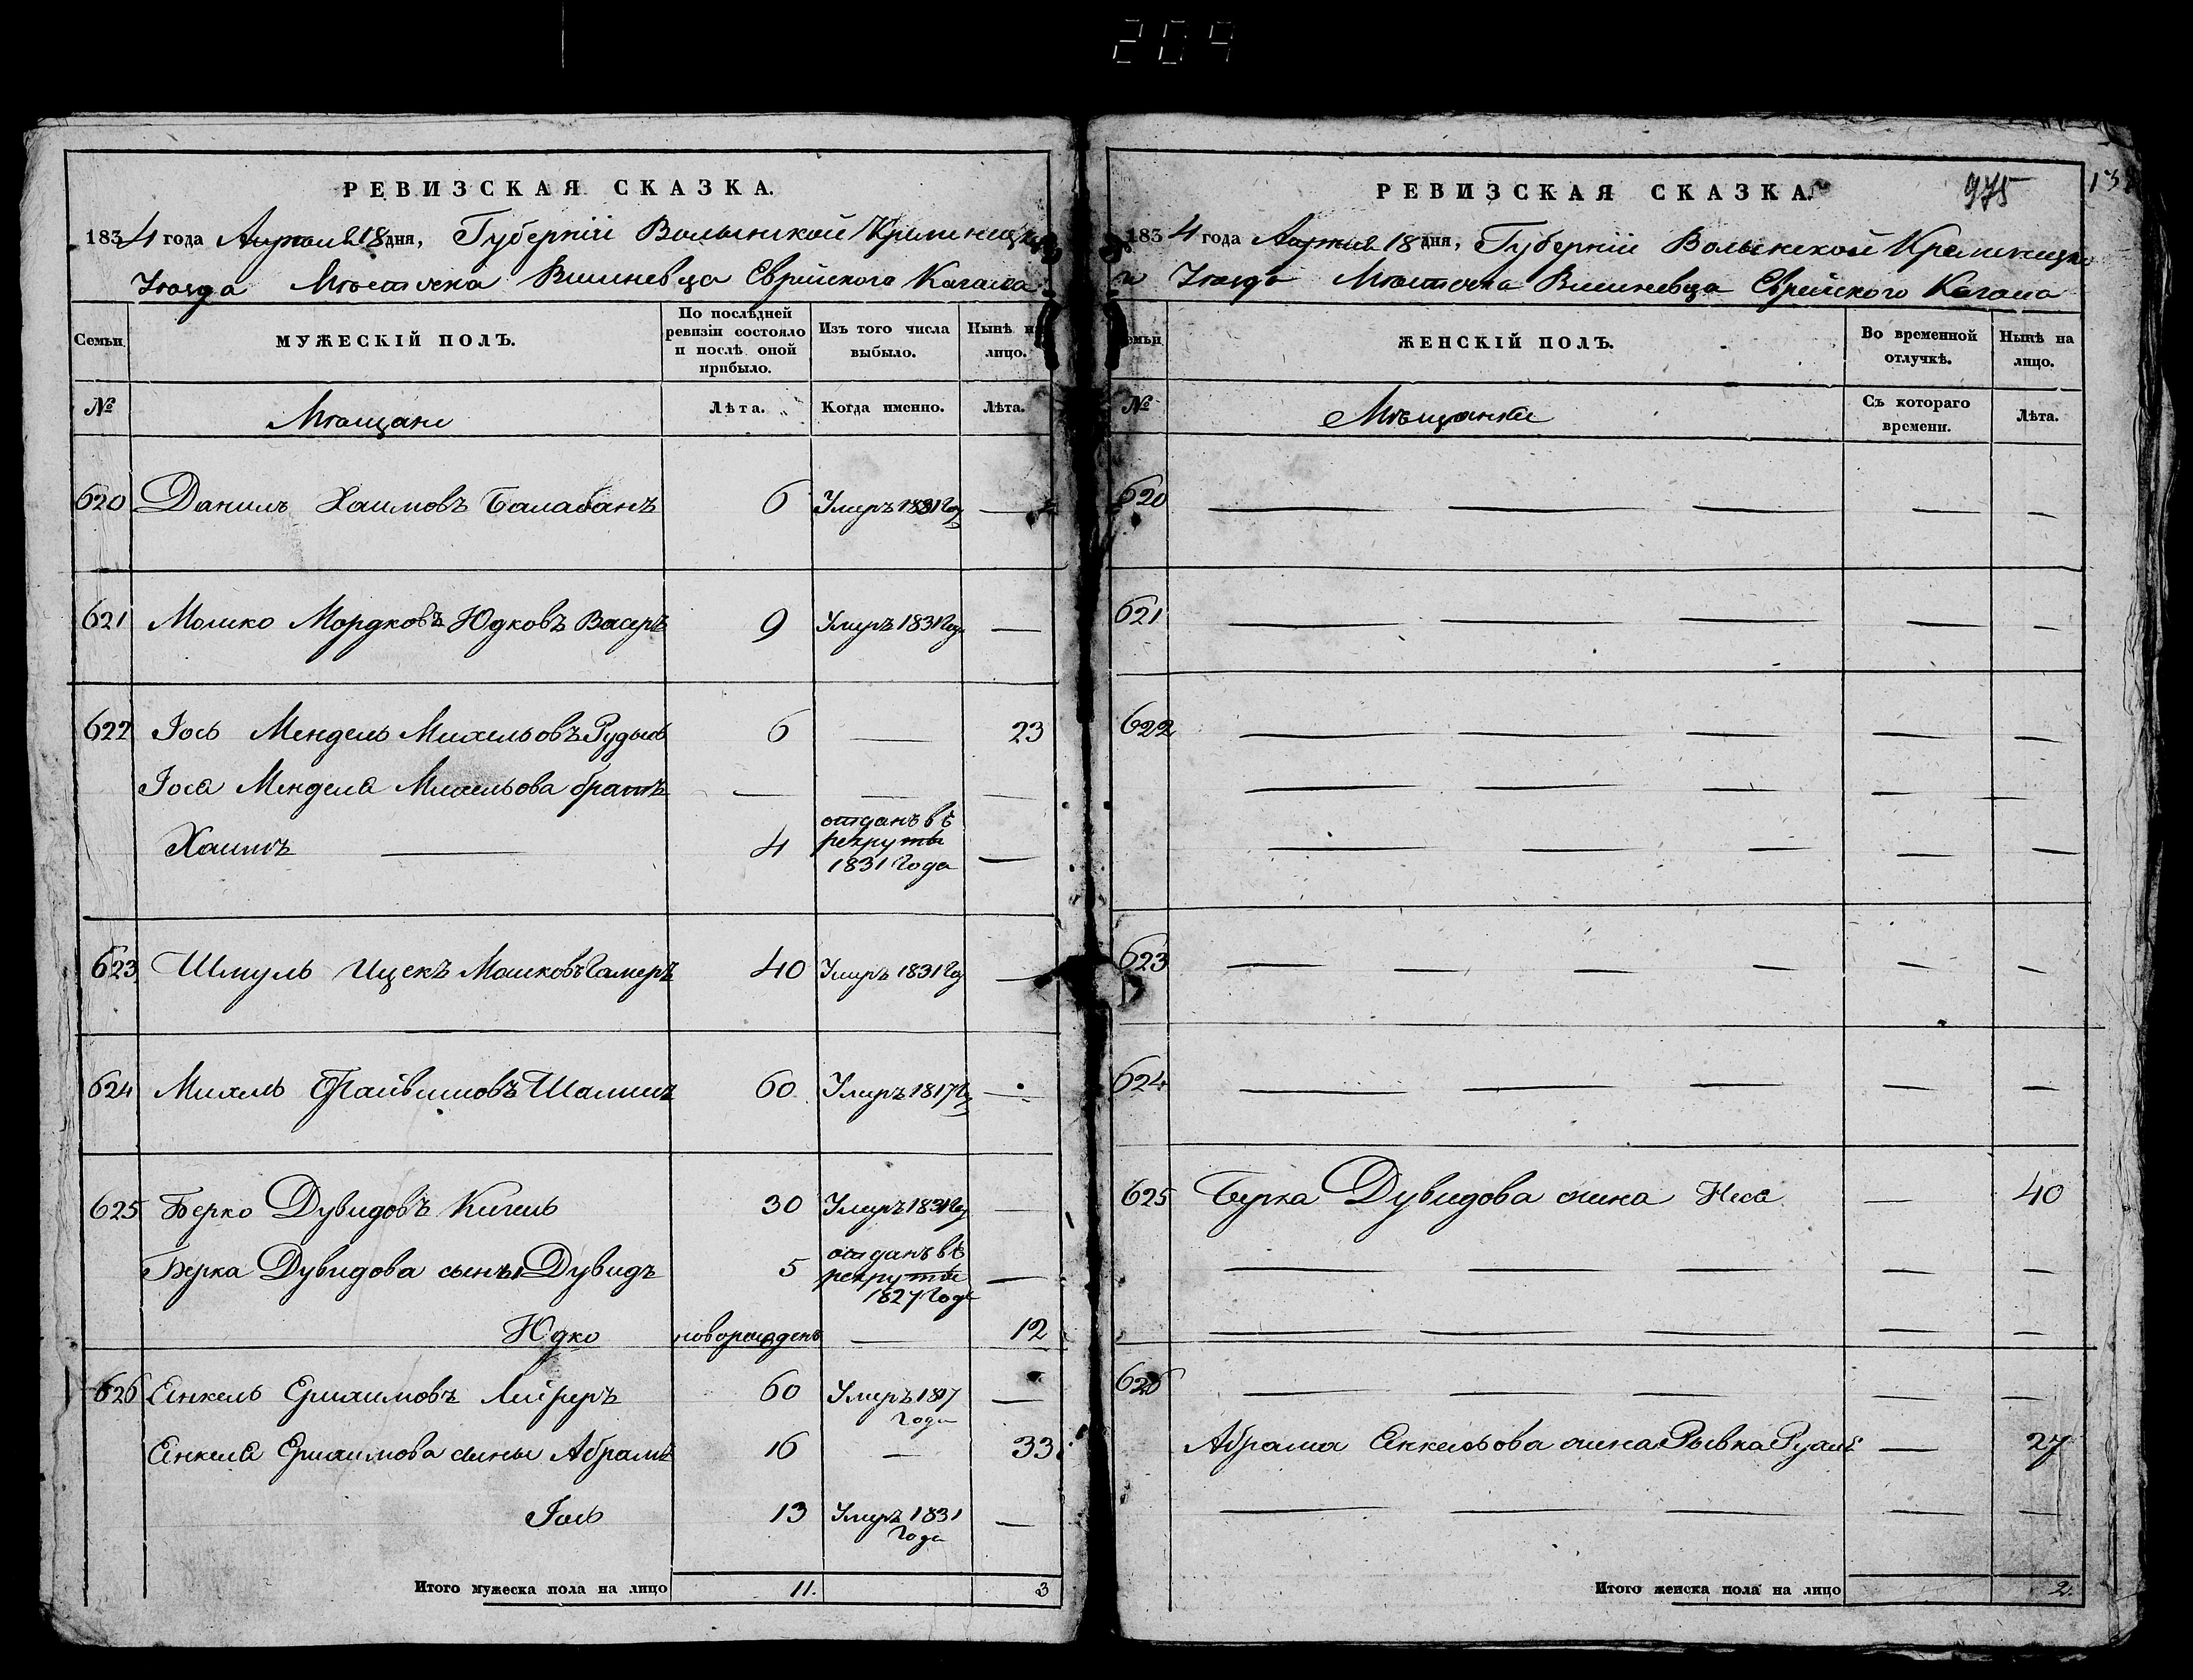 204
РЕВИЗСКАЯ СКАЗКА.
1834 года Апреля 18 дня, Губерніи Волынской Кременецка
Уѣзда Мѣстечка Вишневца Еврейского Кагала
Семьи
МУЖЕСКІЙ ПОЛЪ.
По послѣдней ревизіи состояло и послѣ оной прибыло.
Изъ того числа выбыло.
Нынѣ на лицо.
№
Мѣщане
Лѣта.
Когда именно.
Лѣта.
620 Данилъ Хаимовъ Балабанъ 6 Умеръ 1831 Год —
621 Мошко Мордковъ Юдковъ Васеръ 9 Умеръ 1831 Год —
622 Іось Мендель Михельовъ 6 — 23
Іося Менделя Михельова братъ — — —
Хаимъ — 4 отданъ вѣ рекруты 1831 Года —
623 Шмуль Ицекъ Мошковъ 40 Умеръ 1831 Год —
624 Михель 60 Умеръ 1817 Го —
625 Берко Дувидовъ Кигель 30 Умеръ 1831 Год —
Берка Дувидова сыны 1 Дувидъ 5 отданъ вѣ рекруты 1827 Года —
Юдко новорожденъ — 12
626 Еинкель Ерихимовъ 60 Умеръ 1817 Года —
Еинкеля Ерихимова сыны Абрамъ 16 — 33
Іось 13 Умеръ 1831 Года —
Итого мужеска пола на лицо 11. 3
РЕВИЗСКАЯ СКАЗКА. 975
1834 года Апреля 18 дня, Губерніи Волынской Кременецка
го Уѣзда Мѣстечка Вишневца Еврейского Кагала
Семьи
ЖЕНСКІЙ ПОЛЪ.
Во временной отлучкѣ.
Нынѣ на лицо.
№
Мѣщанки
Съ котораго времени.
Лѣта.
620 — — — — —
621 — — — — —
622 — — — — —
— — — — —
— — — — —
623 — — — — — —
624 — — — — —
625 Берка Дувидова жена Неся — 40
— — — — —
— — — — —
626 — — — — —
Абрама Енкельова жена Рывка — 27
— — — — —
Итого женска пола на лицо 2.